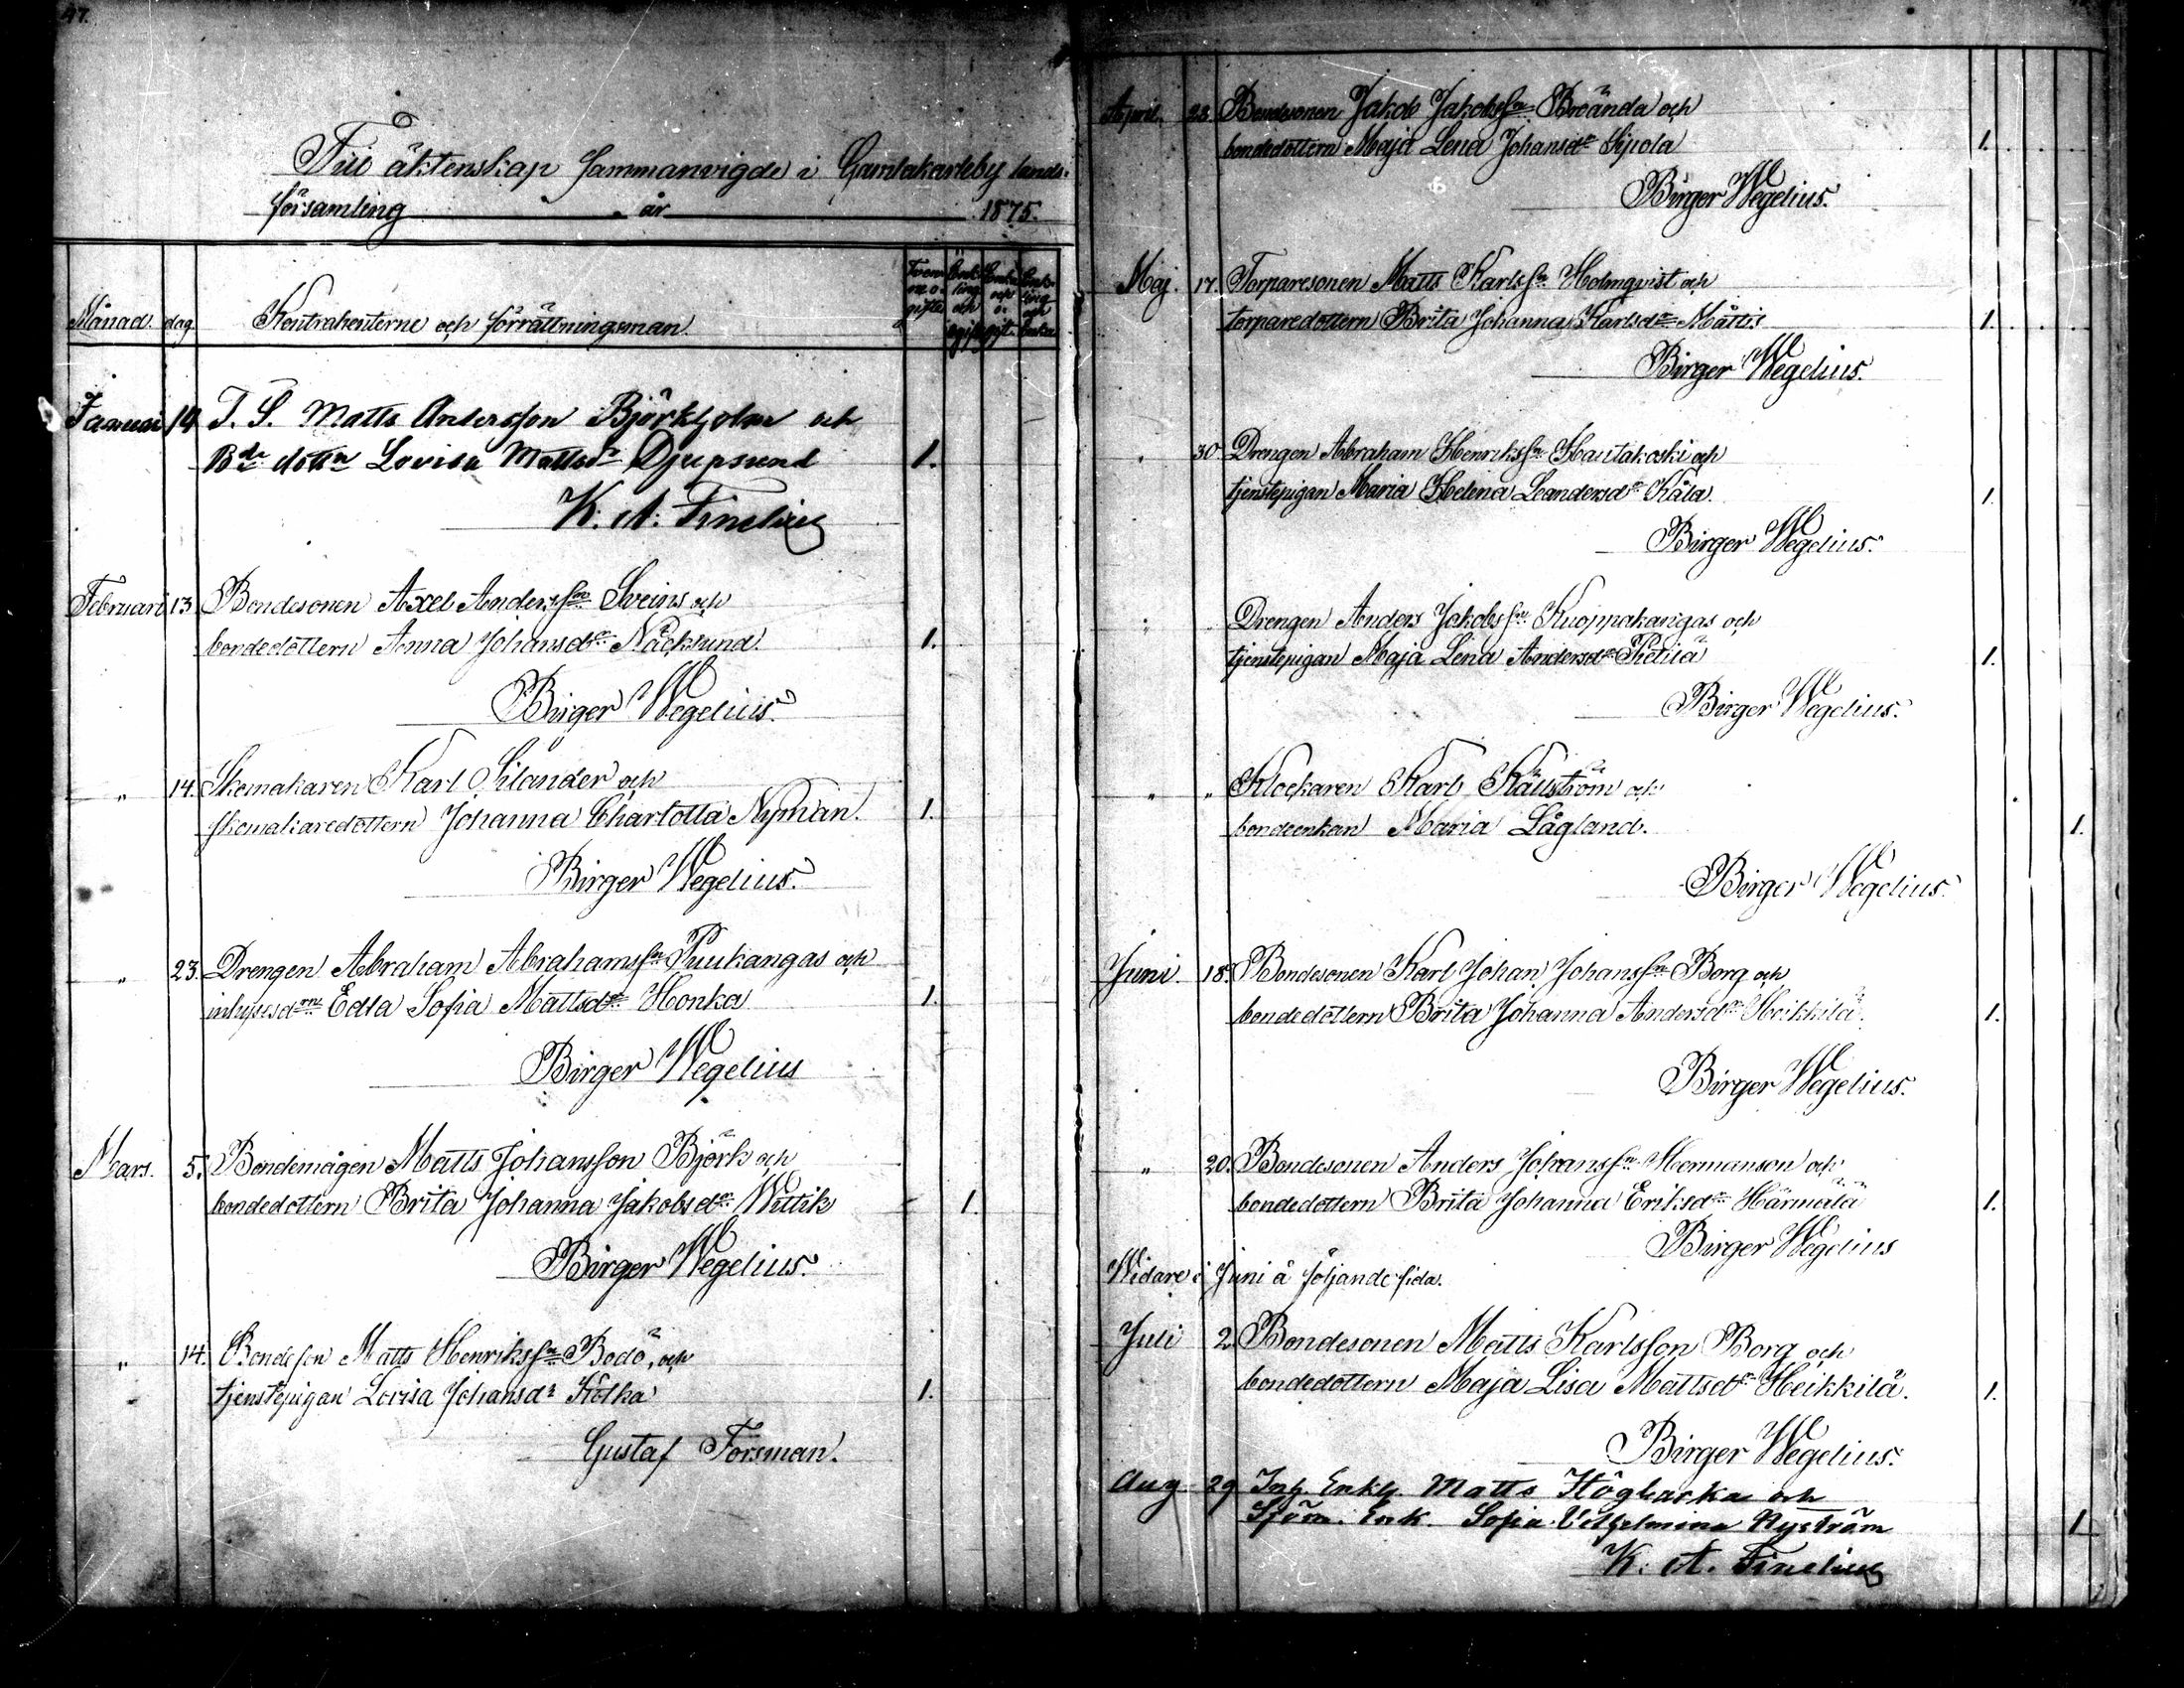 47.
Till äktenskap sammanvigde i Gamlakarleby lands-
församling år 1875.
Månad. dag Kontrahenterne och förrättningsman. Tvenne ogifte Enkling och ogift Enka och ogift. Enkling och enka
Januari 14 T. S. Matts Andersson Björkholm och
Bde dottn Lovisa Mattsdr Djupsund 1.
K. A. Finelius
Februari 13 Bondesonen Axel Anderssn Sveins och
bondedottern Anna Johansdr Näcksund. 1.
Birger Wegelius.
" 14. Skomakaren Karl Silander och
skomakaredottern Johanna Charlotta Nyman. 1.
Birger Wegelius.
" 23. Drengen Abraham Abrahamssn Puukangas och
inhysesdrn Edla Sofia Mattsdr Honka 1.
Birger Wegelius
Mars. 5. Bondemågen Matts Johansson Björk och
bondedottern Brita Johanna Jakobsdr Wittik 1.
Birger Wegelius.
" 14. Bondeson Matts Henrikssn Bodö, och
tjenstepigan Lovisa Johansdr Kotka 1.
Gustaf Forsman.
April. 23. Bondesonen Jakob Jakobssn Broända och
bondedottern Maja Lena Johansdr Sipola 1.
Birger Wegelius.
Maj. 17. Torparesonen Matts Karlssn Holmqvist och
torparedottern Brita Johanna Karlsdr Mattis 1.
Birger Wegelius.
" 30 Drengen Abraham Henrikssn Hautakoski och
tjenstepigan Maria Helena Leandersdr Kåla. 1.
Birger Wegelius.
" Drengen Anders Jakobssn Kuoppakangas och
tjenstepigan Maja Lena Andersdr 1.
Birger Wegelius.
" " Klockaren Karl Källström och
bondeenkan Maria Lågland. 1.
Birger Wegelius.
Juni. 18. Bondesonen Karl Johan Johanssn Borg och
bondedottern Brita Johanna Andersdr Heikkilä. 1.
Birger Wegelius.
" 20. Bondesonen Anders Johanssn Hermanson och
bondedottern Brita Johanna Eriksdr Härmälä 1.
Birger Wegelius
Widare i Juni å följande sida.
Juli 2. Bondesonen Matts Karlsson Borg och
bondedottern Maja Lisa Mattsdr Heikkilä. 1.
Birger Wegelius.
Aug 29 Inh. Enkl. Matts Högbacka och
Sjöm. Enk. Sofia Vilhelmina Nyström 1
K. A. Finelius